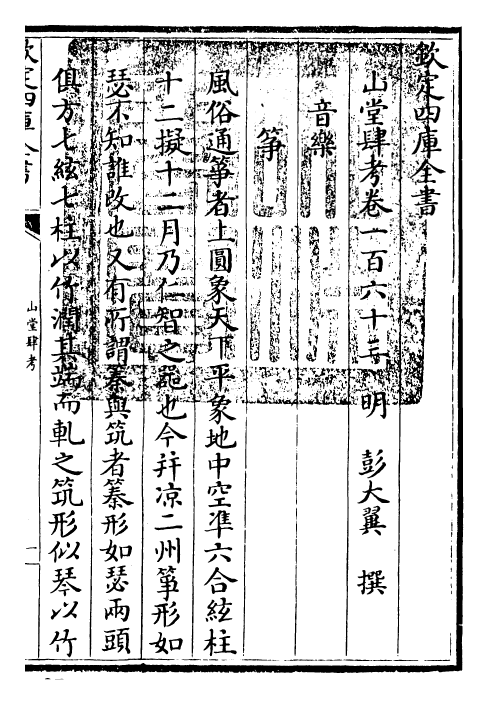 欽定四庫全書
山堂肆考卷一百六十二　明　彭大翼　撰
音樂
箏
風俗通箏者上圓象天下平象地中空準六合絃柱
十二擬十二月乃仁智之器也今并凉二州箏形如
瑟不知誰改也又有所謂𥱧與筑者𥱧形如瑟兩頭
俱方七絃七柱以竹潤其端而軋之筑形似琴以竹
欽定四庫全書
山堂肆考
一